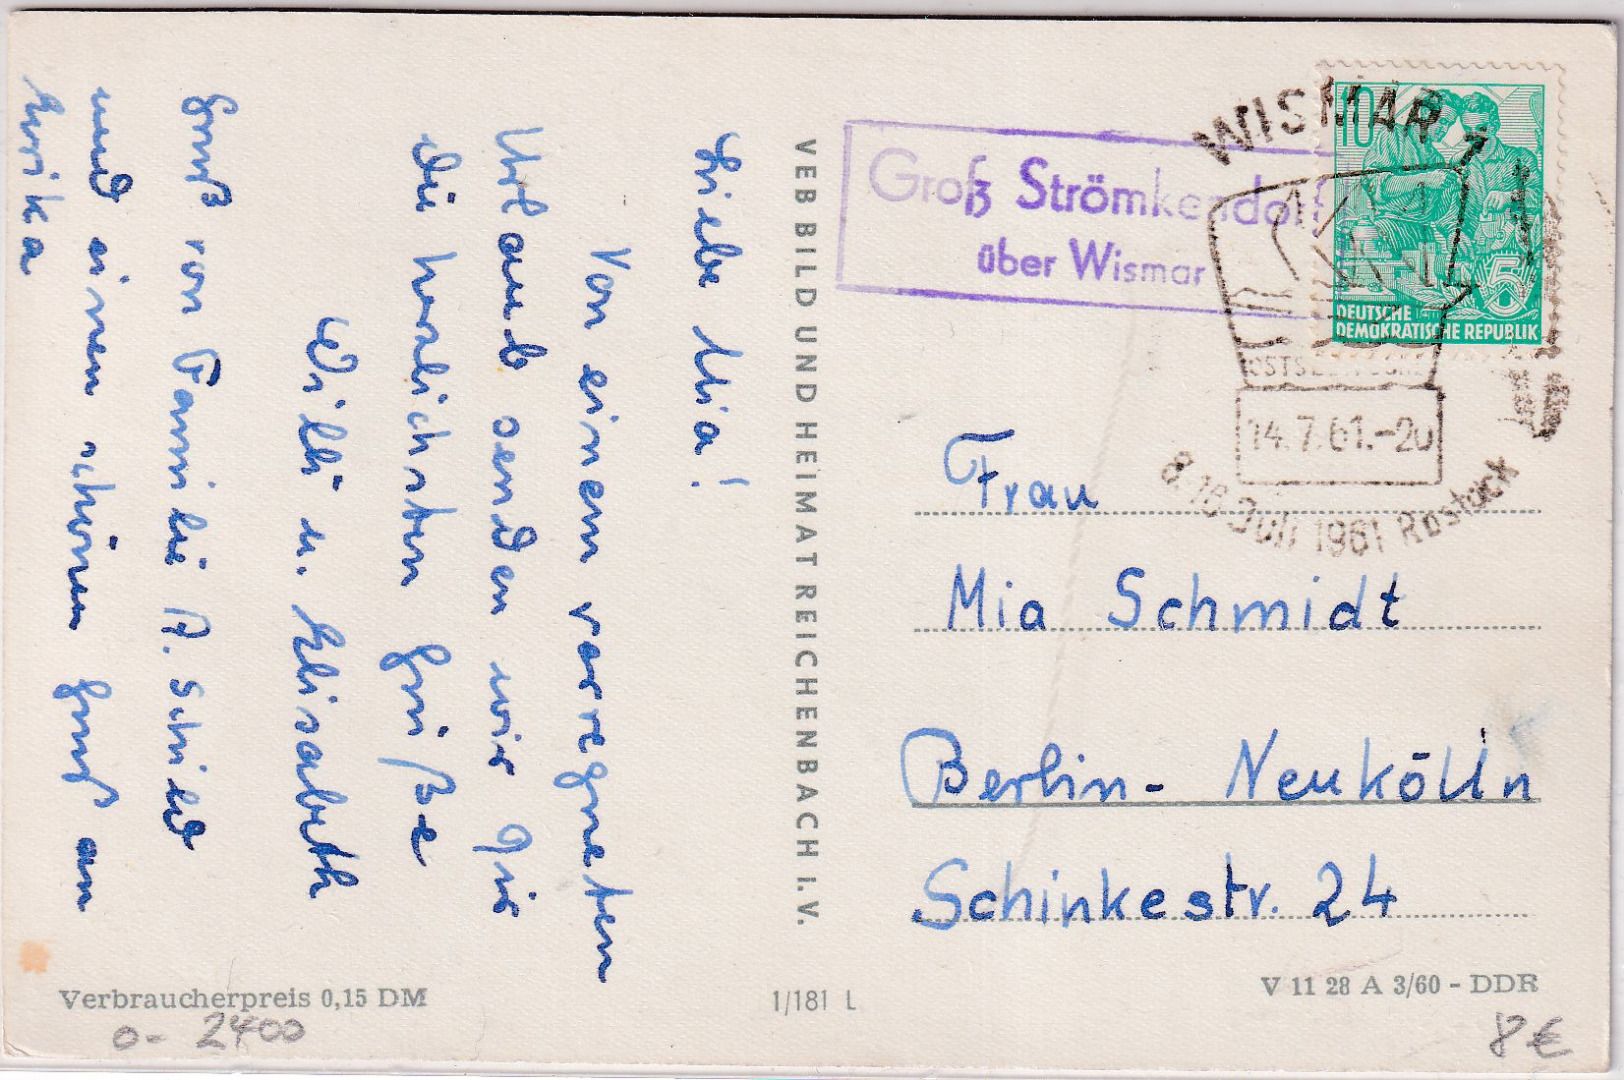 Liebe Mia!
Von einem verregneten
Urlaub senden wir Dir
die herzlichsten Grüße
Willi u. Elisabeth
Gruß von Familie A. Schild
und einen schönen Gruß an
Erika
VEB BILD UND HEIMAT REICHENBACH I.V.
Groß Strömkendorf
über Wismar
WISMAR
10
5
DEUTSCHE
DEMOKRATISCHE REPUBLIK
14.7.61.-20
8.-16 Juli 1961 Rostock
Frau
Mia Schmidt
Berlin- Neukölln
Schinkestr. 24
Verbraucherpreis 0,15 DM
1/181 L
V 11 28 A 3/60 - DDR
0- 2400
8€